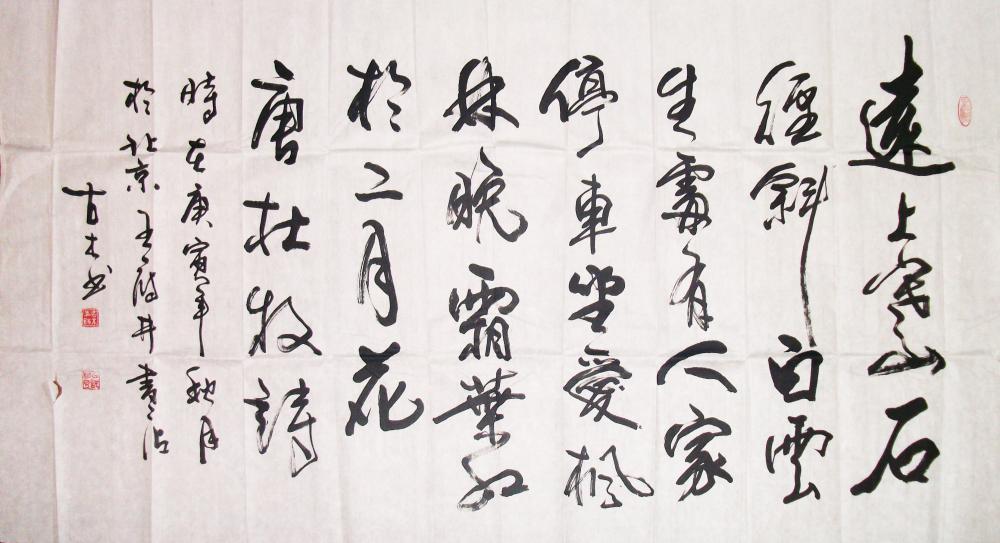 遠上寒山石
徑斜白雲
生處有人家
停車坐愛楓
林晚霜葉紅
於二月花
唐杜牧詩
時在庚寅年秋月
於北京王府井書店
古木书